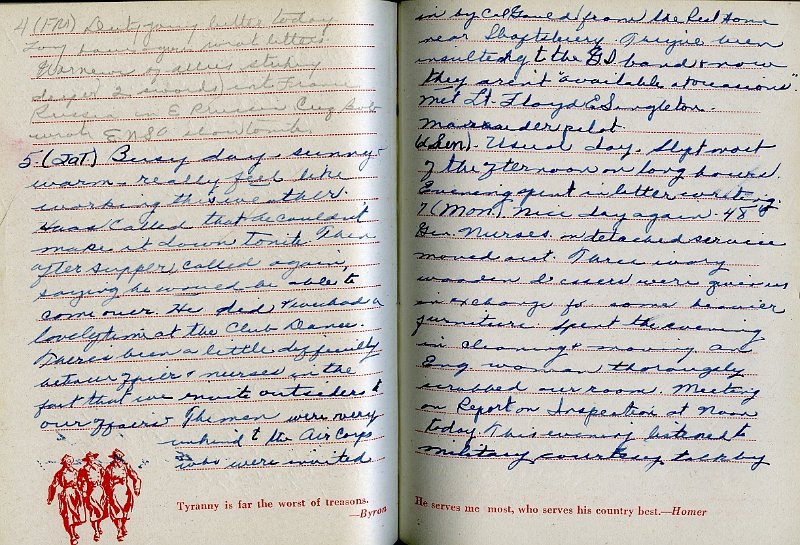 4 (FRI) Duty going better today
Long hours gives
War news of allies striking
deeper into France
Russia in E Prussia
wrote ENSA show tonite
5. (SAT) Busy day & sunny &
warm & really feel like
working this weather.
called that he couldn't
make it down tonite. Then
after supper, called again,
saying he would be able to
come over. He did & we had a
lovely time at the Club Dance.
There's been a little difficulty
between officers & nurses in the
fact that we invite outsiders to
our affairs. The men were very
unkind to the Air Corps
who were invited
Tyranny is far the worst of treasons.
—Byron
in by Col from the Red Home
near Shaftesbury. They've been
insulted by the band & now
they aren't "available at occasions"
Met Lt. Floyd C Singleton.
marauder pilot
6 (Sun). Usual day. Slept most
of the afternoon on long hours.
Evening spent in letter writing.
7 (Mon). Nice day again. 48th
Gen. Nurses on detached service
moved out. Three ivory
wooden dressers were given us
in exchange for some heavier
furniture. Spent the evening
in cleaning & moving as
Eng. woman thoroughly
scrubbed our room. Meeting
on Report on Inspection at Noon
today. This evening listened to
military courtesy talk by
He serves me most, who serves his country best.—Homer